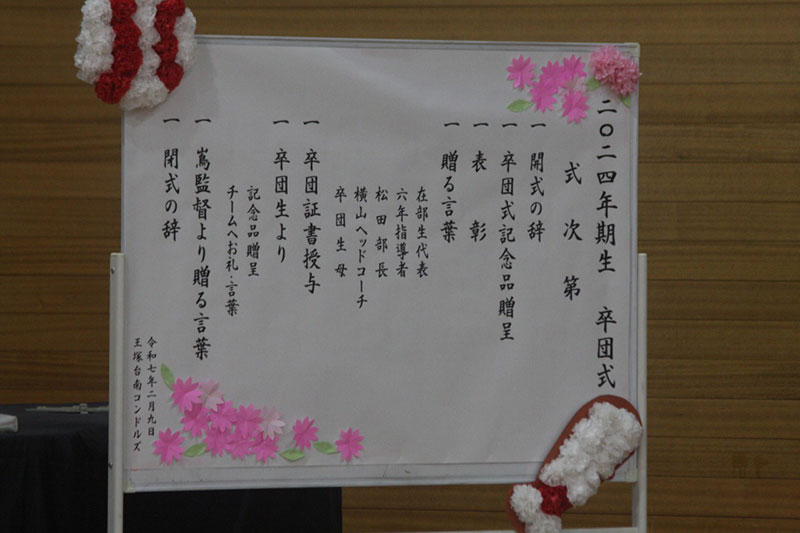 二〇二四年期生 卒団式
式次第
一 開式の辞
一 卒団式記念品贈呈
一 表彰
一 贈る言葉
在部生代表
六年指導者
松田部長
横山ヘッドコーチ
卒団生母
一 卒団証書授与
一 卒団生より
記念品贈呈
チームへお礼・言葉
一 嶌監督より贈る言葉
一 閉式の辞
令和七年二月九日
王塚台南コンドルズ